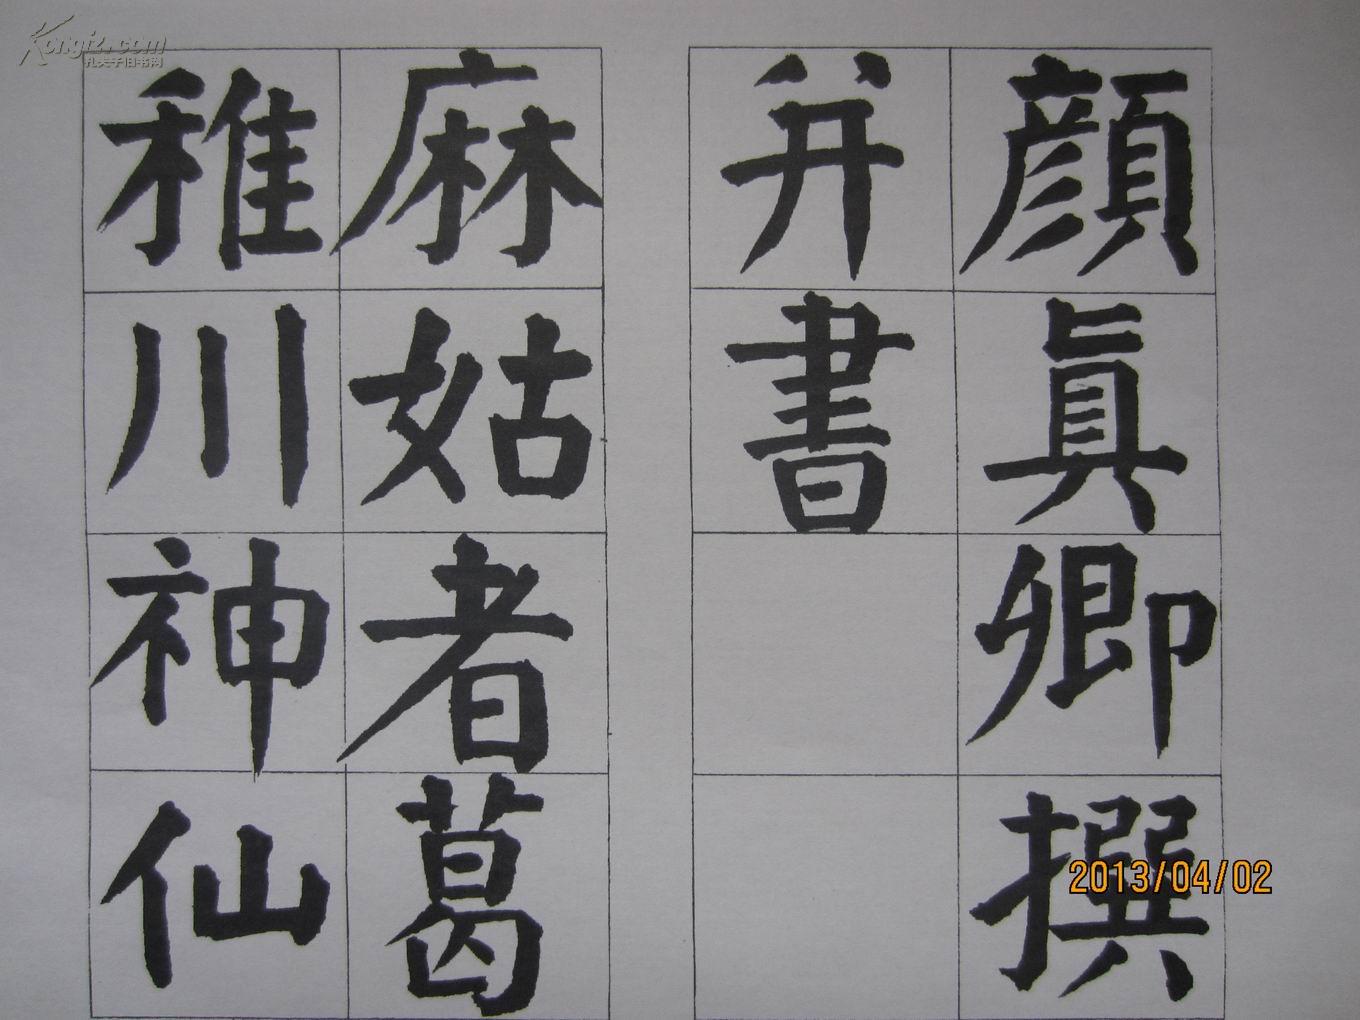 顔真卿撰
并書
麻姑者葛
稚川神仙
Kongfz.com
孔夫子旧书网
2013/04/02